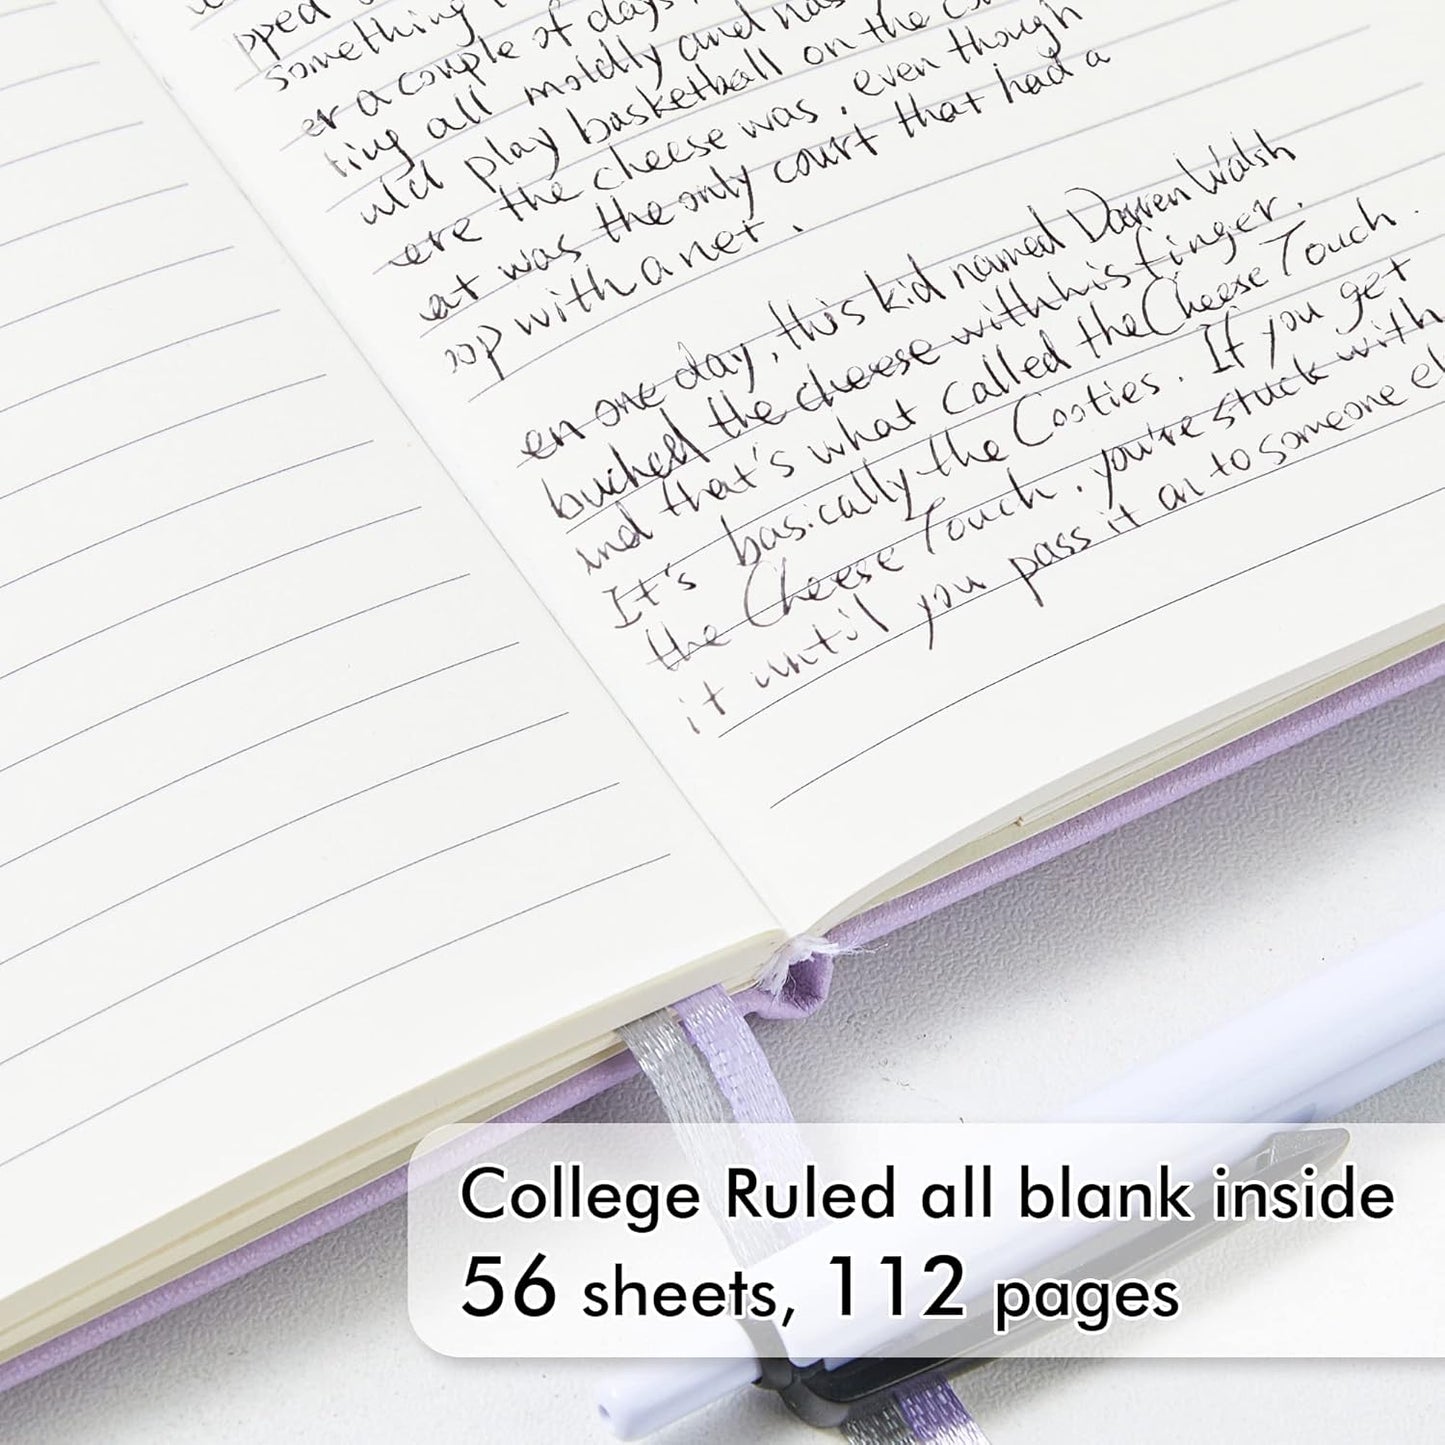 pped
something
er a couple of days,
ting all moldly and nas
uld play basketball on the
ere the cheese was, even though
at was the only court that had a
oop with a net.
en one day, this kid named Darren Walsh
buched the cheese with his finger.
ind that's what called the Cheese Touch.
It's basically the Cooties. If you get
the Cheese Touch, you're stuck with
it until you pass it on to someone el
College Ruled all blank inside
56 sheets, 112 pages